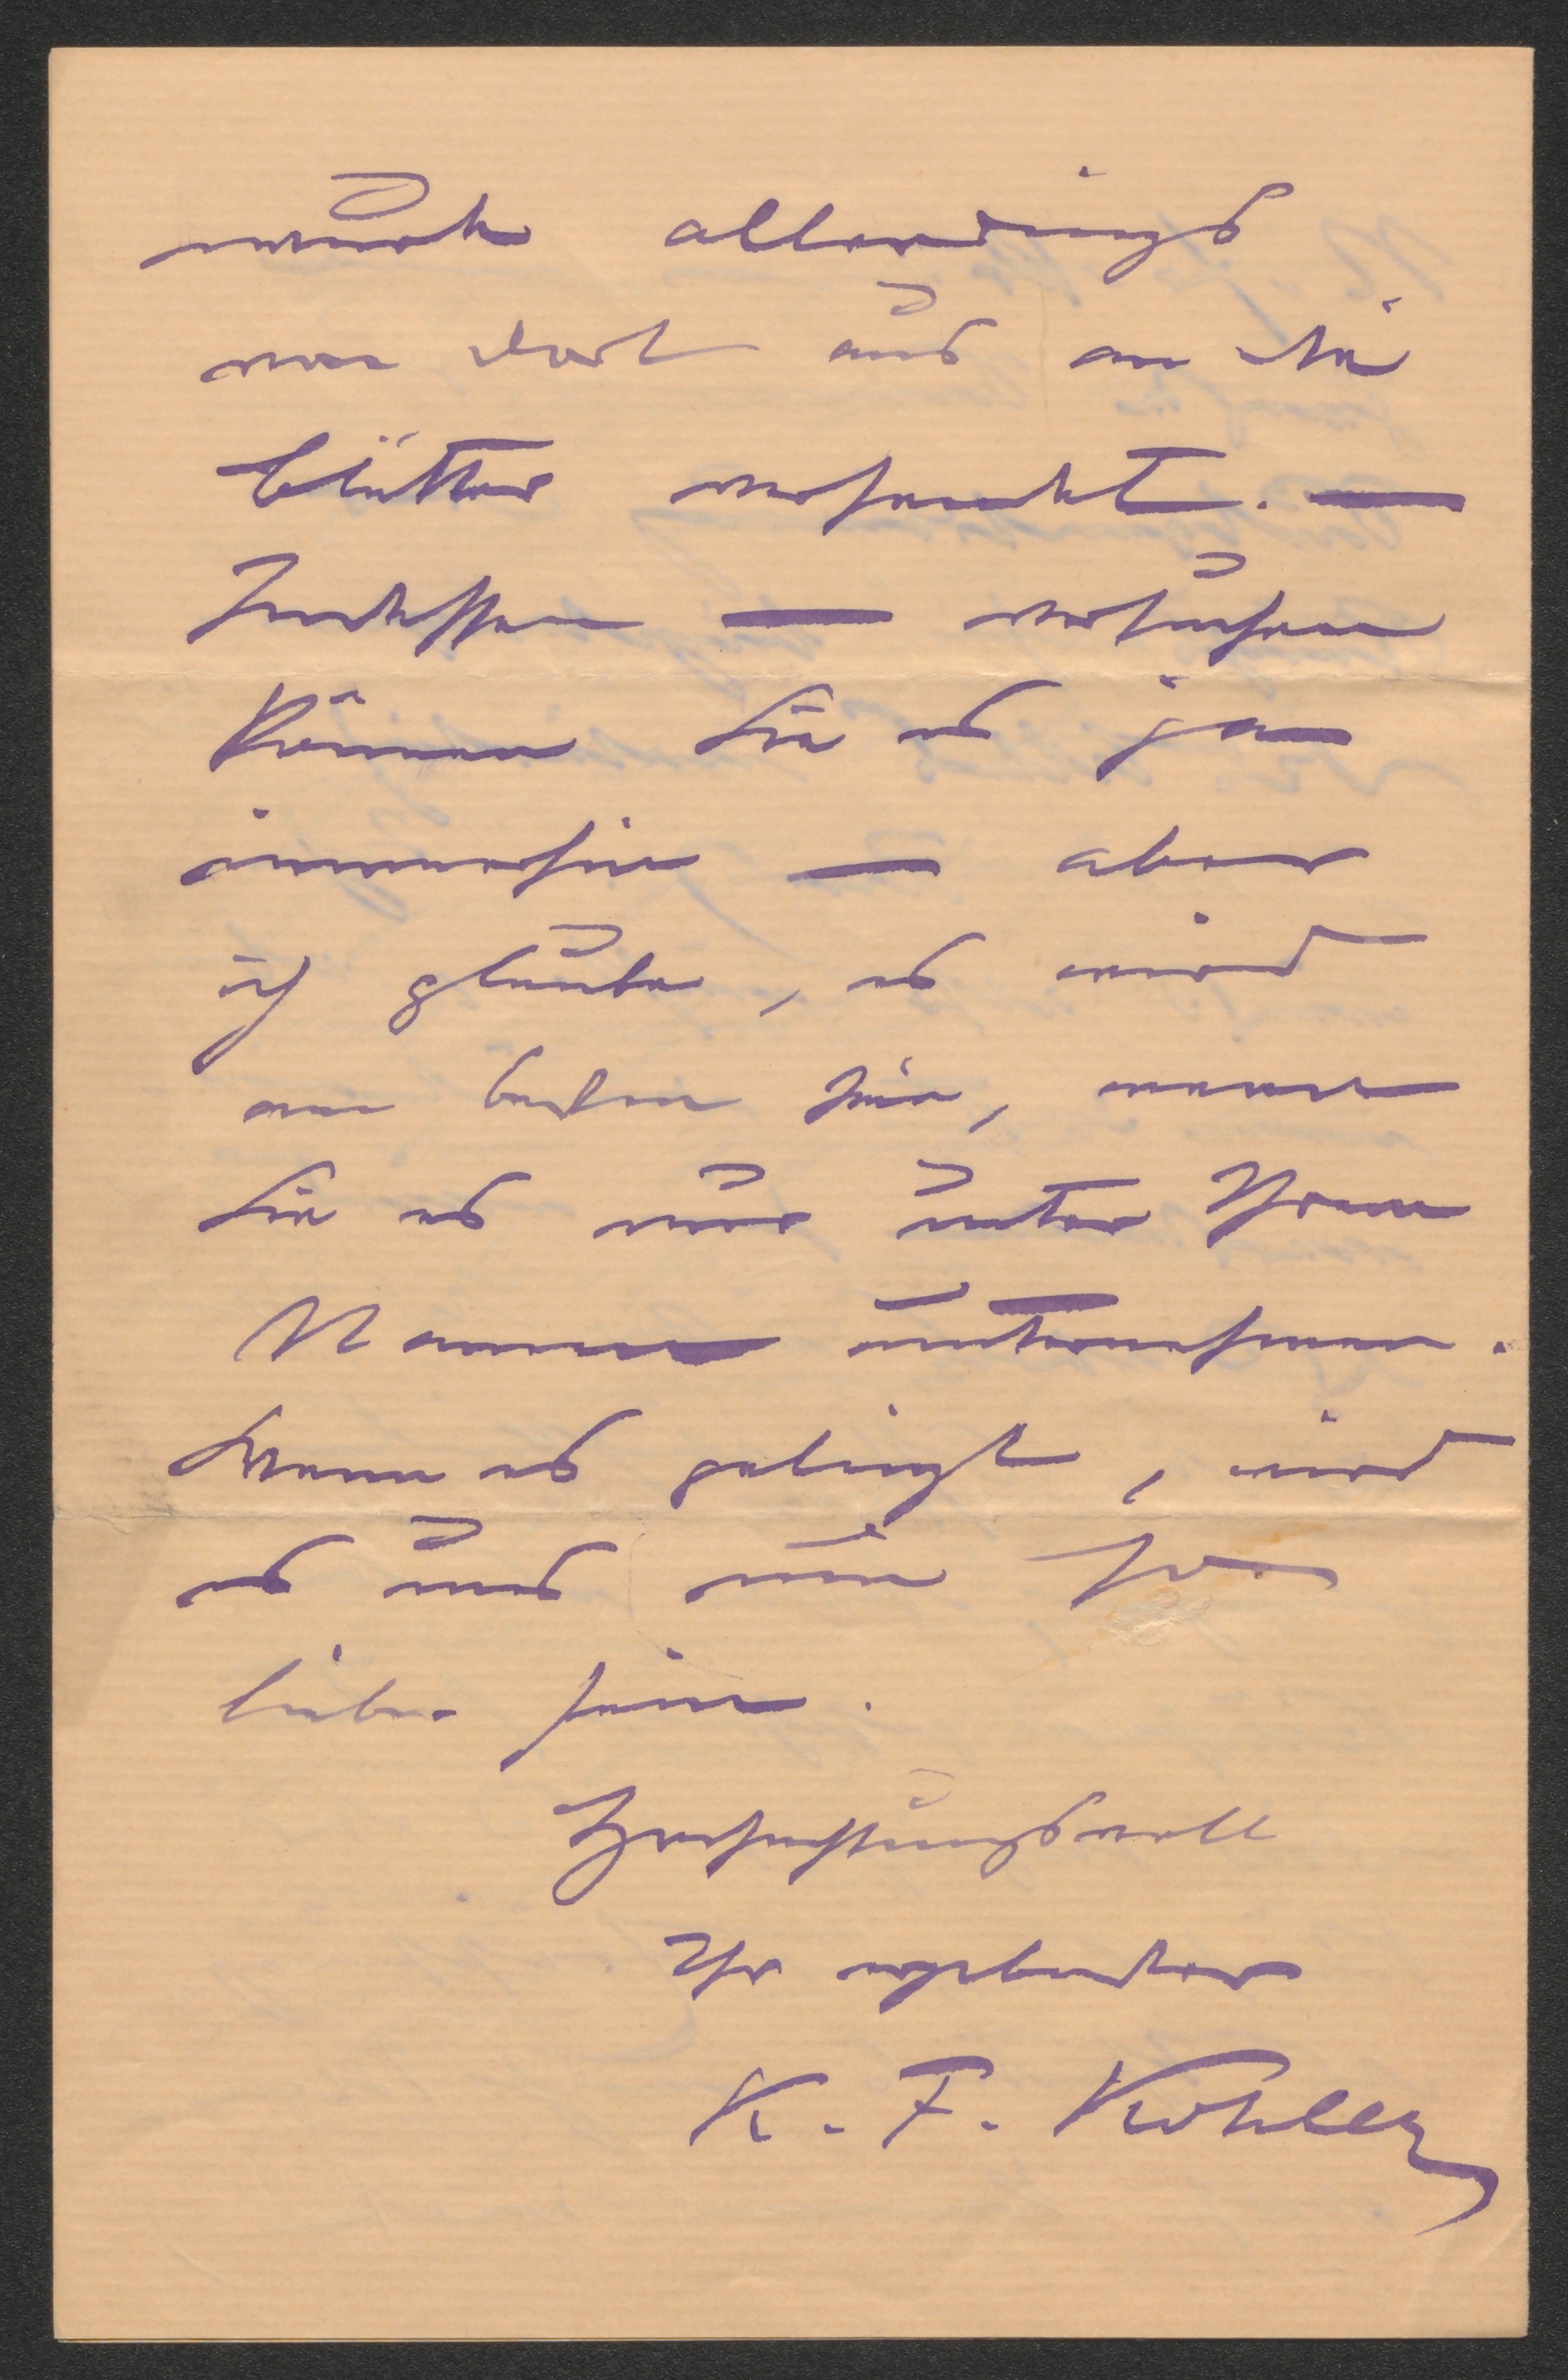 wurde allerdings
von dort aus an die
Blätter versendet. —
Indessen — versuchen
können Sie es ja
immerhin — aber
ich glaube, es wird
am besten sein, wenn
Sie es nur unter Ihrem
Namen unternehmen.
Wenn es gelingt, wird
es uns nur so
lieber sein.
Hochachtungsvoll
Ihr ergebenster
K. F. Kohler